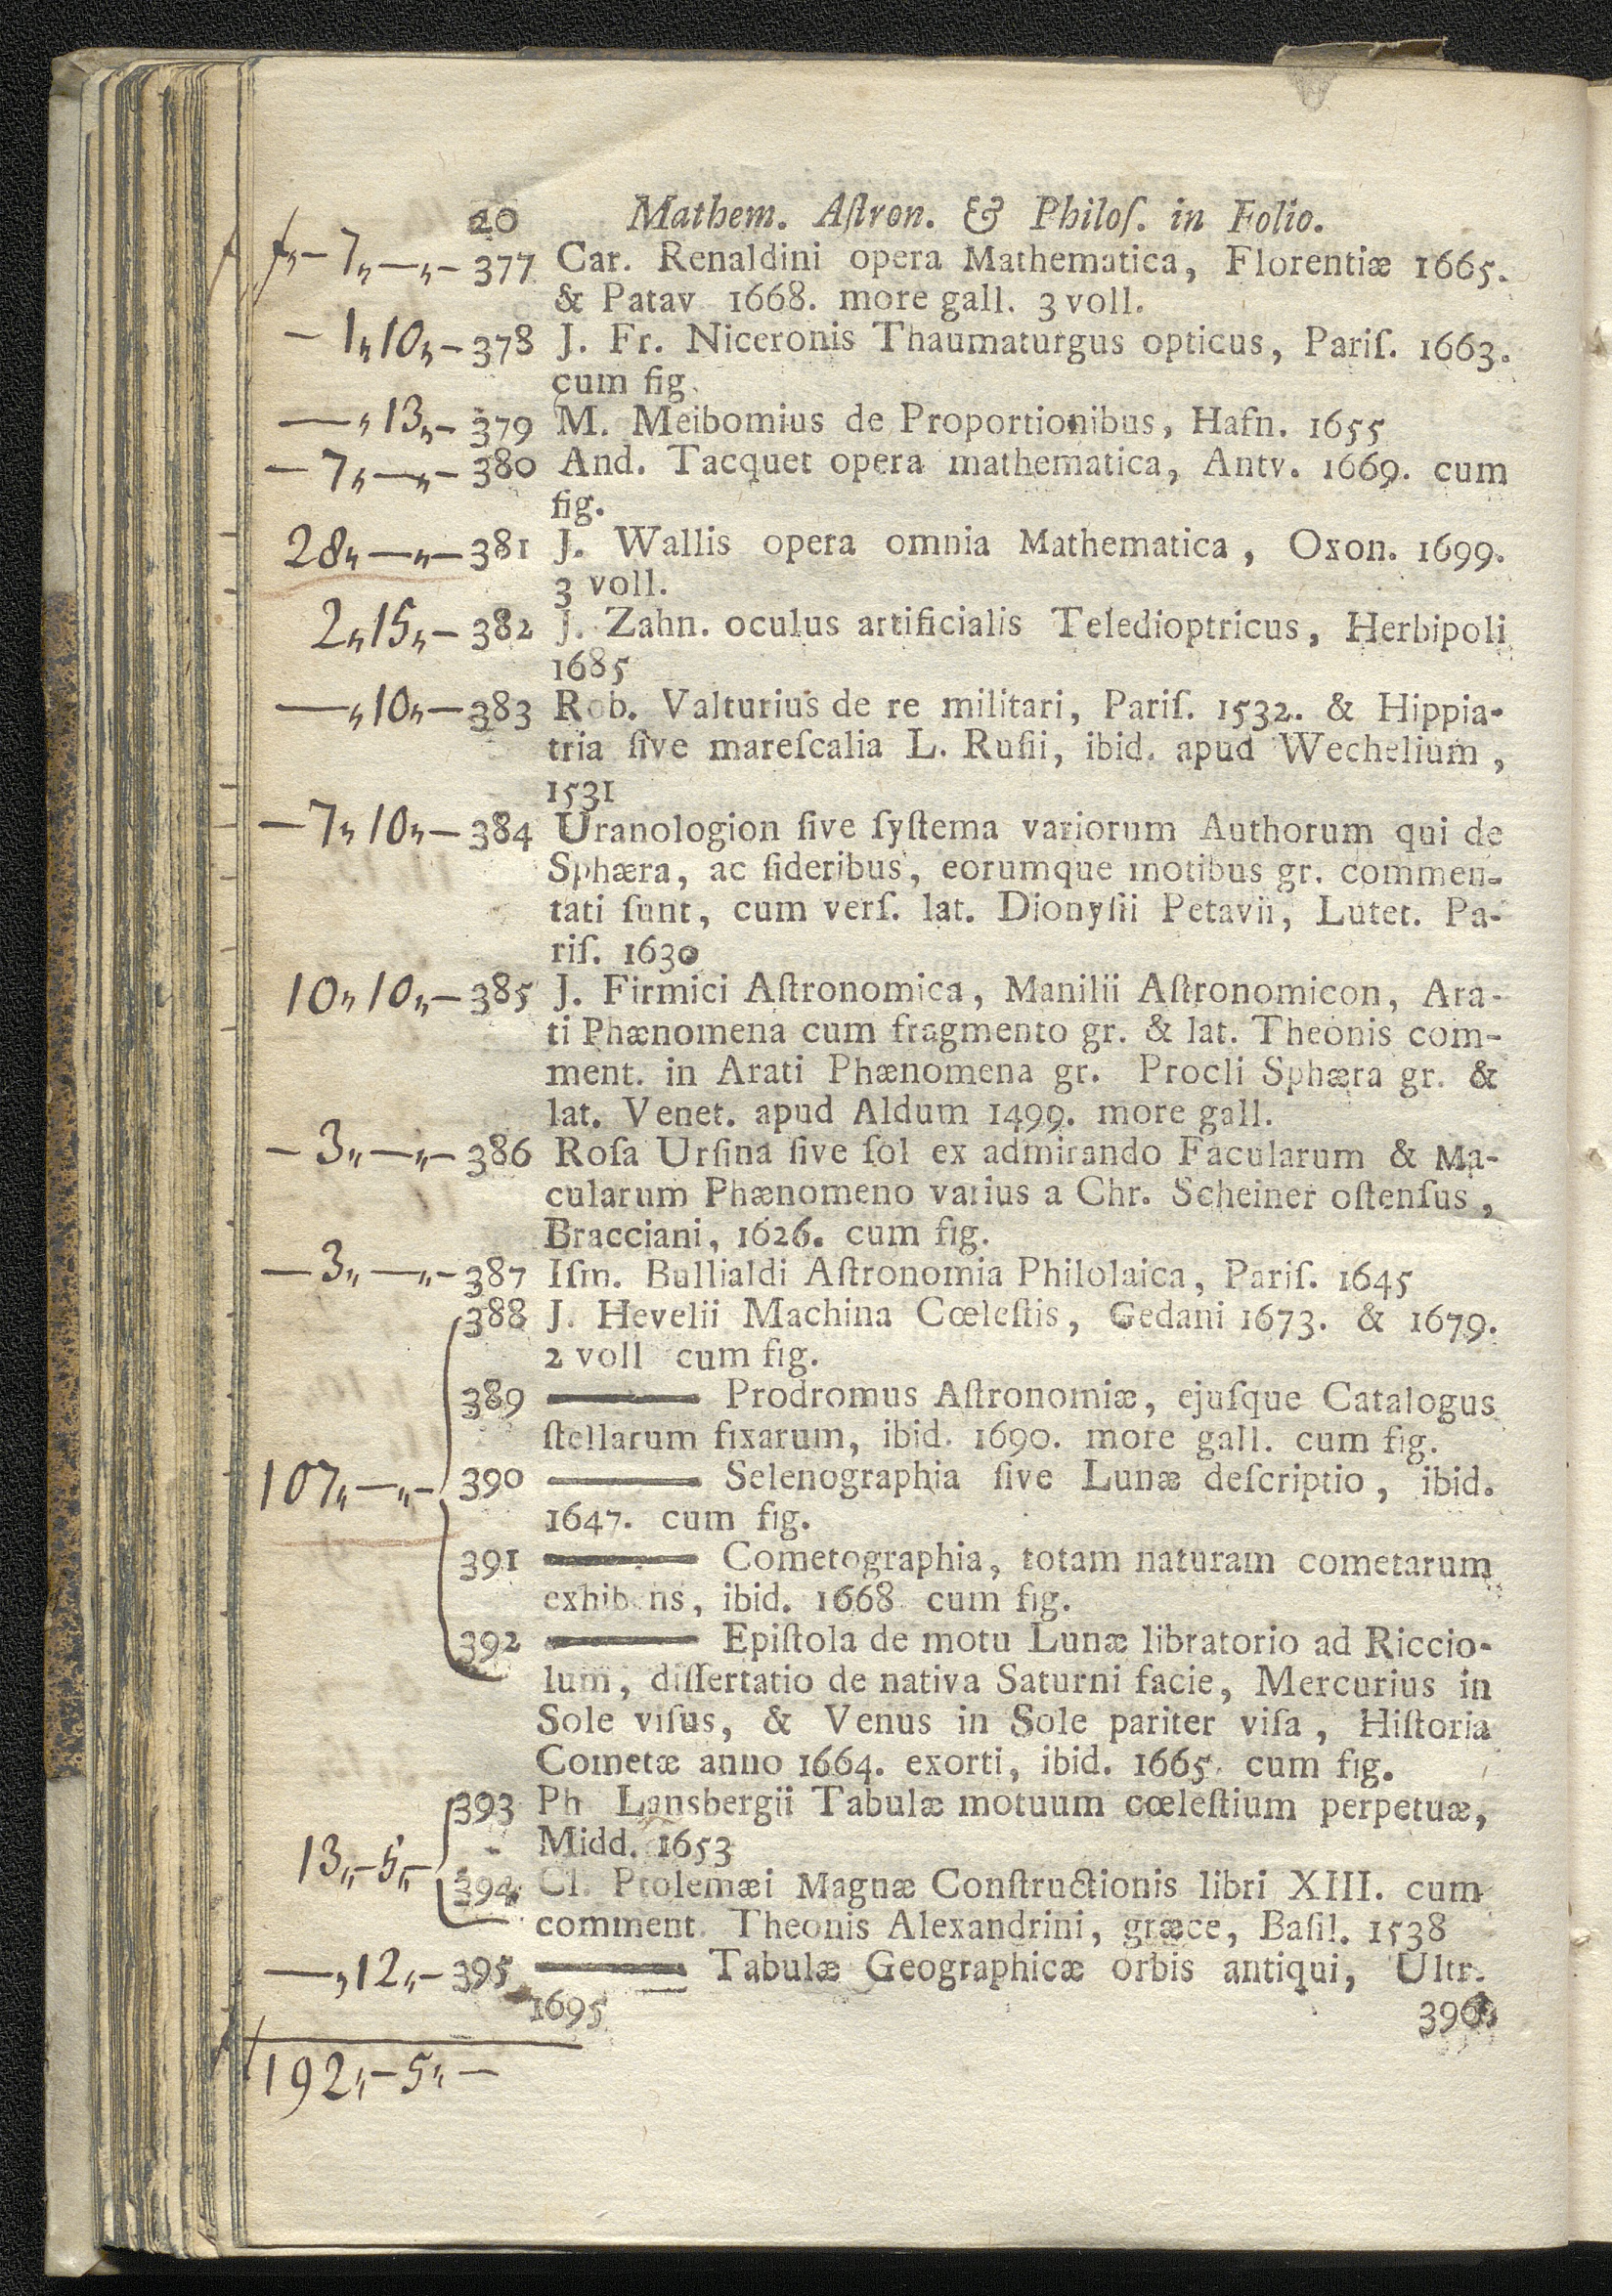 20 Mathem. Aſtron. & Philoſ. in Folio.
ƒ„– 7„ —„– 377 Car. Renaldini opera Mathematica, Florentiæ 1665.
& Patav 1668. more gall. 3 voll.
– 1„ 10„ – 378 J. Fr. Niceronis Thaumaturgus opticus, Pariſ. 1663.
cum fig.
—„ 13„ – 379 M. Meibomius de Proportionibus, Hafn. 1655
– 7„ —„ – 380 And. Tacquet opera mathematica, Antv. 1669. cum
fig.
28„ —„ – 381 J. Wallis opera omnia Mathematica, Oxon. 1699.
3 voll.
2„ 15„ – 382 J. Zahn. oculus artificialis Teledioptricus, Herbipoli
1685
—„ 10„ – 383 Rob. Valturius de re militari, Pariſ. 1532. & Hippia-
tria ſive mareſcalia L. Ruſii, ibid. apud Wechelium,
1531
– 7„ 10„ – 384 Uranologion ſive ſyſtema variorum Authorum qui de
Sphæra, ac ſideribus, eorumque motibus gr. commen-
tati ſunt, cum verſ. lat. Dionyſii Petavii, Lutet. Pa-
riſ. 1630
10„ 10„ – 385 J. Firmici Aſtronomica, Manilii Aſtronomicon, Ara-
ti Phænomena cum fragmento gr. & lat. Theonis com-
ment. in Arati Phænomena gr. Procli Sphæra gr. &
lat. Venet. apud Aldum 1499. more gall.
– 3„ —„ – 386 Roſa Urſina ſive ſol ex admirando Facularum & Ma-
cularum Phænomeno varius a Chr. Scheiner oſtenſus,
Bracciani, 1626. cum fig.
– 3„ —„ – 387 Iſm. Bullialdi Aſtronomia Philolaica, Pariſ. 1645
388 J. Hevelii Machina Cœleſtis, Gedani 1673. & 1679.
2 voll cum fig.
389 ——— Prodromus Aſtronomiæ, ejuſque Catalogus
ſtellarum fixarum, ibid. 1690. more gall. cum fig.
107„ —„ – 390 ——— Selenographia ſive Lunæ deſcriptio, ibid.
1647. cum fig.
391 ——— Cometographia, totam naturam cometarum
exhibens, ibid. 1668 cum fig.
392 ——— Epiſtola de motu Lunæ libratorio ad Riccio-
lum, diſſertatio de nativa Saturni facie, Mercurius in
Sole viſus, & Venus in Sole pariter viſa, Hiſtoria
Cometæ anno 1664. exorti, ibid. 1665. cum fig.
393 Ph Lansbergii Tabulæ motuum cœleſtium perpetuæ,
Midd. 1653
13„ – 5„ – 394 Cl. Ptolemæi Magnæ Conſtructionis libri XIII. cum
comment. Theonis Alexandrini, græce, Baſil. 1538
—„ 12„ – 395 ——— Tabulæ Geographicæ orbis antiqui, Ultr.
1695
396
ƒ 192„ – 5„ –